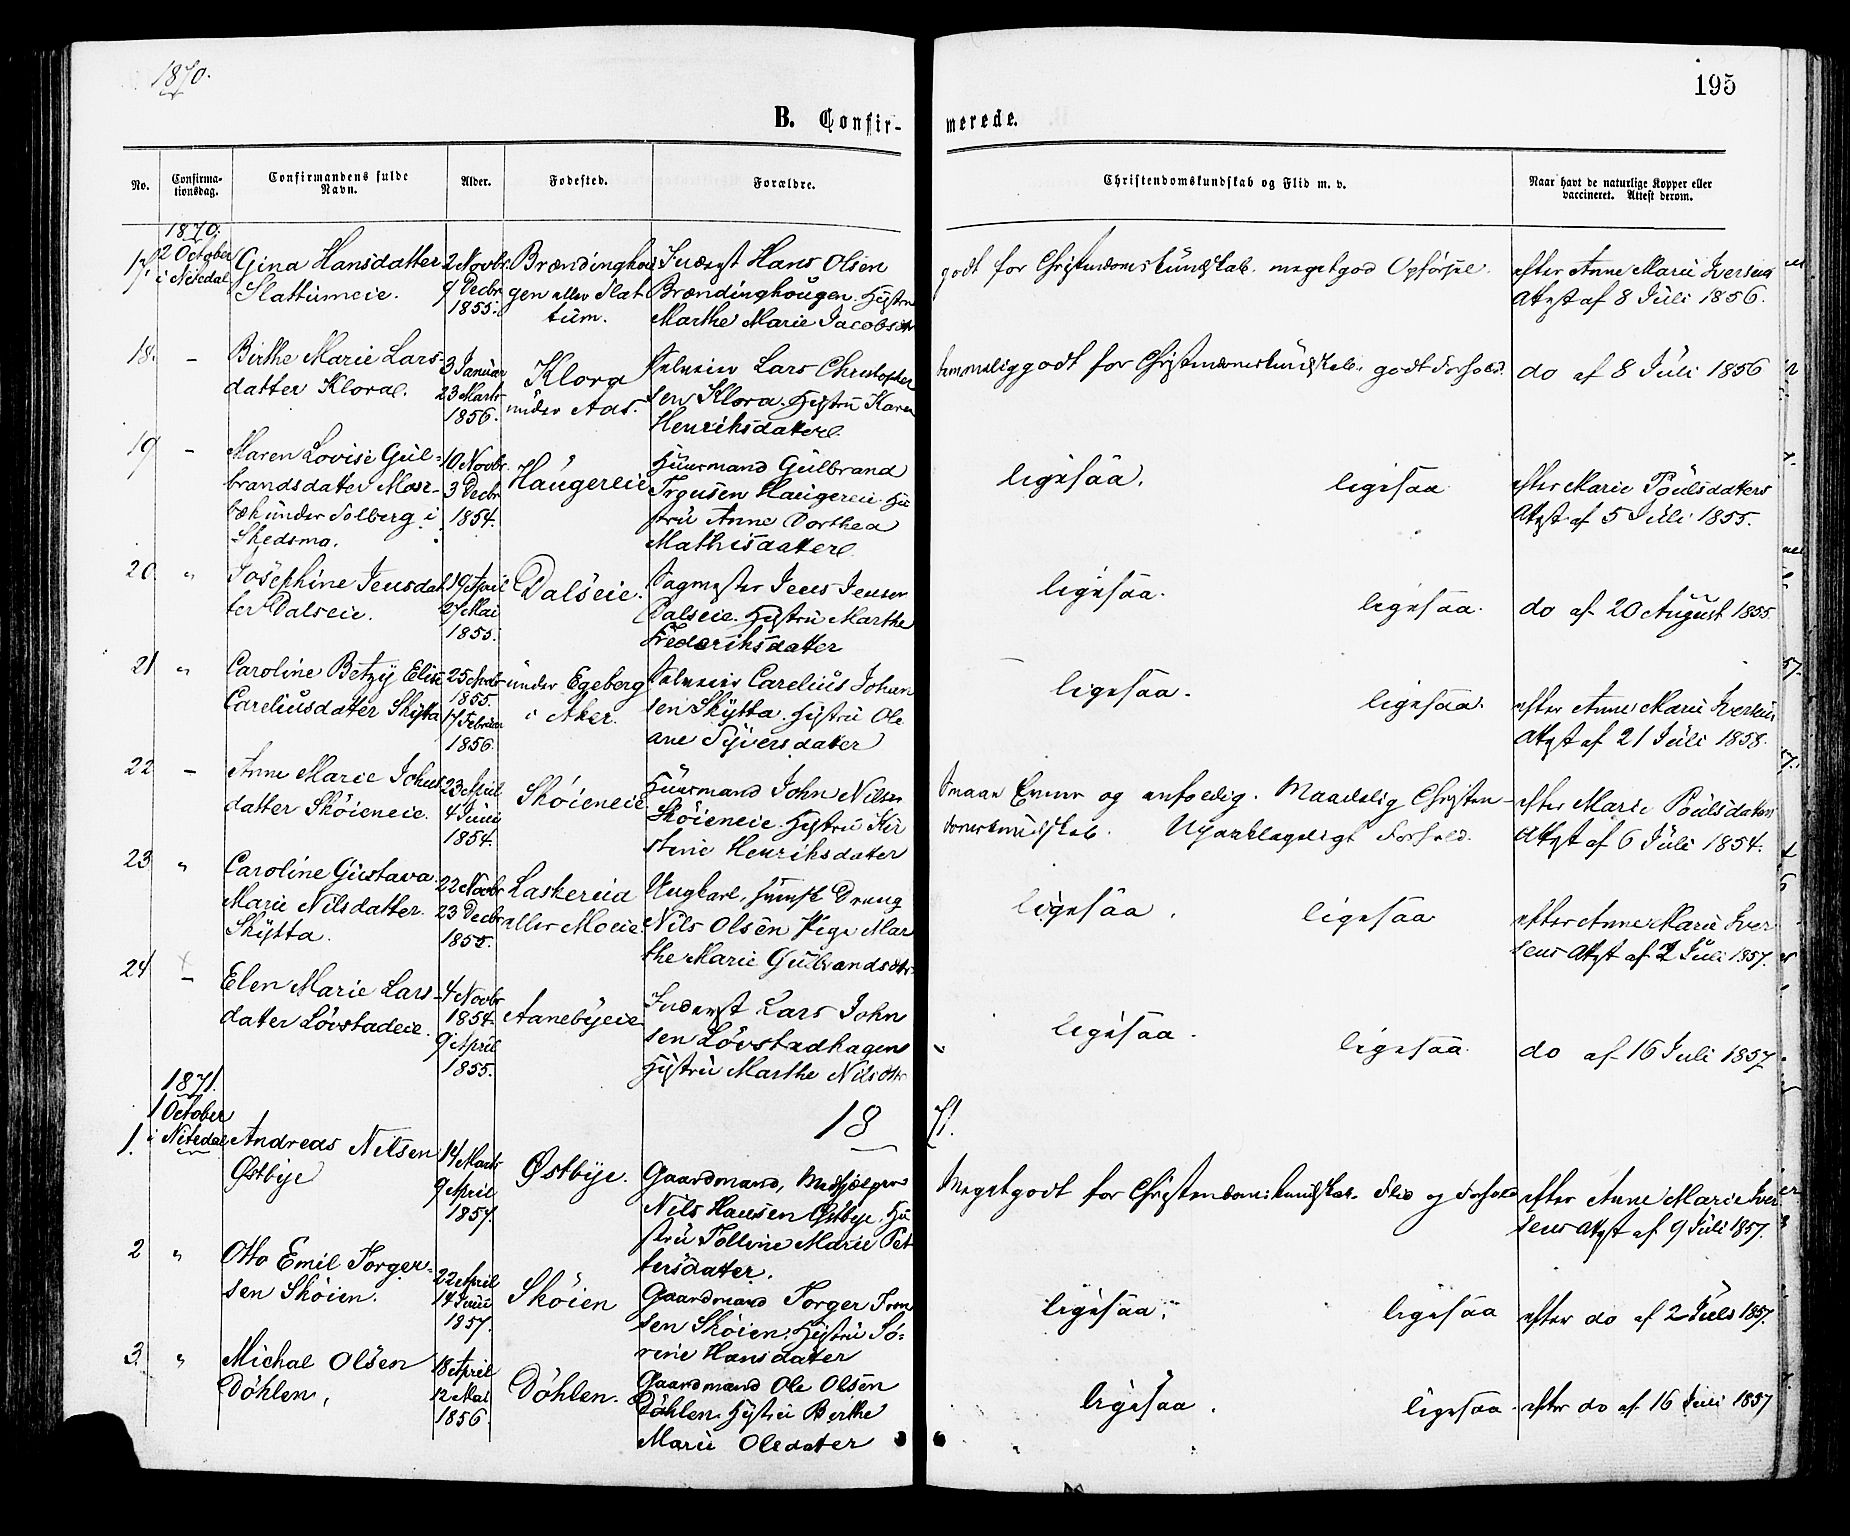 1870.
195
B. Confir-
merede.
No.
Confirma-
tionsdag.
Confirmandens fulde
Navn.
Alder.
Fødested.
Forældre.
Christendomskundskab og Flid m. v.
Naar havt de naturlige Kopper eller
vaccineret. Attest derom.
1870.
17. 2 October
i Nitedal
Gina Hansdatter
Slattumeie.
2 Novbr
9 Decbr
1855.
Brændinghou
gen eller Slat
tum.
Inderst Hans Olsen
Brændinghougen. Hustru
Marthe Marie Jacobsdtr
godt for Christendomskundskab. megetgod Opførsel.
efter Anne Marie Iversens
Attest af 8 Juli 1856.
18. –
Birthe Marie Lars-
datter Klora.
3 Januar
23 Marts
1856.
Klora
under Aas.
Selveier Lars Christopher
sen Klora. Hustru Karen
Henriksdatter
temmeliggodt for Christendomskundskab. godt Forhold.
do af 8 Juli 1856
19 –
Maren Lovise Gul-
brandsdatter Mose-
bæk under Solberg i
Skedsmo.
10 Novbr.
3 Decbr
1854.
Haugereie
Huusmand Gulbrand
Haugereie Hu
stru Anne Dorthea
Mathisdatter
ligesaa.
ligesaa
efter Marie Poulsdatters
Attest af 5 Juli 1855.
20. "
Josephine Jensdat
ter Dalseie.
19 April
27 Mai
1855.
Dalseie.
Sagmester Jens Jensen
Dalseie. Hustru Marthe
Frederiksdatter
ligesaa.
ligesaa.
do af 20 August 1855.
21 "
Caroline Betzy Elise
Careliusdatter Skytta
25
1855.
17 Februar
1856.
under Egeberg
i Aker.
Selveier Carelius Johan
sen Skytta. Hustru Ole
ane Syversdatter
ligesaa.
ligesaa.
efter Anne Marie Iversens
Attest af 21 Juli 1858.
22 –
Anne Marie Johns
datter Skøieneie.
23 April
4 Juni
1854.
Skøieneie
Huusmand John Nilsen
Skøieneie. Hustru Kir
stine Henriksdatter
Smaae Evner og enfoldig. Maadelig Christen-
domskundskab. Upaaklageligt Forhold.
efter Marie Poulsdatters
Attest af 6 Juli 1854.
23 "
Caroline Gustava
Marie Nilsdatter
Skytta.
22 Novbr
23 Decbr
1855.
Laskereia
eller Moeie.
Ungkarl,
Nils Olsen Pige Mar
the Marie Gulbrandsdtr.
ligesaa.
ligesaa
efter Anne Marie Iver
sens Attest af 2 Juli 1857.
24 –
Elen Marie Lars-
datter Løvstadeie.
4 Novbr
1854.
9 April
1855.
Aanebyeie
Inderst Lars John
sen Løvstadhagen
Hustru Marthe Nilsdtr
ligesaa.
ligesaa.
do af 16 Juli 1857
18
71.
1871.
1. 1 October
i Nitedal
Andreas Nilsen
Østbye
14 Marts
9 April
1857.
Østbye.
Gaardmand, Medhjælper
Nils Hansen Østbye. Hu
stru Tolline Marie Pet
tersdatter.
Megetgodt for Christendomskundskab. Flid og Forhold
efter Anne Marie Iver
sens Attest af 9 Juli 1857.
2 "
Otto Emil Torger-
sen Skøien.
22 April
14 Juni
1857.
Skøien
Gaardmand Torger Iver
sen Skøien. Hustru So-
rine Hansdatter
ligesaa.
ligesaa
efter do af 2 Juli 1857.
3. "
Michal Olsen
Døhlen.
18 April
12 Mai
1856.
Døhlen.
Gaardmand Ole Olsen
Døhlen. Hustru Berthe
Marie Olsdatter
ligesaa.
ligesaa.
efter do af 16 Juli 1857